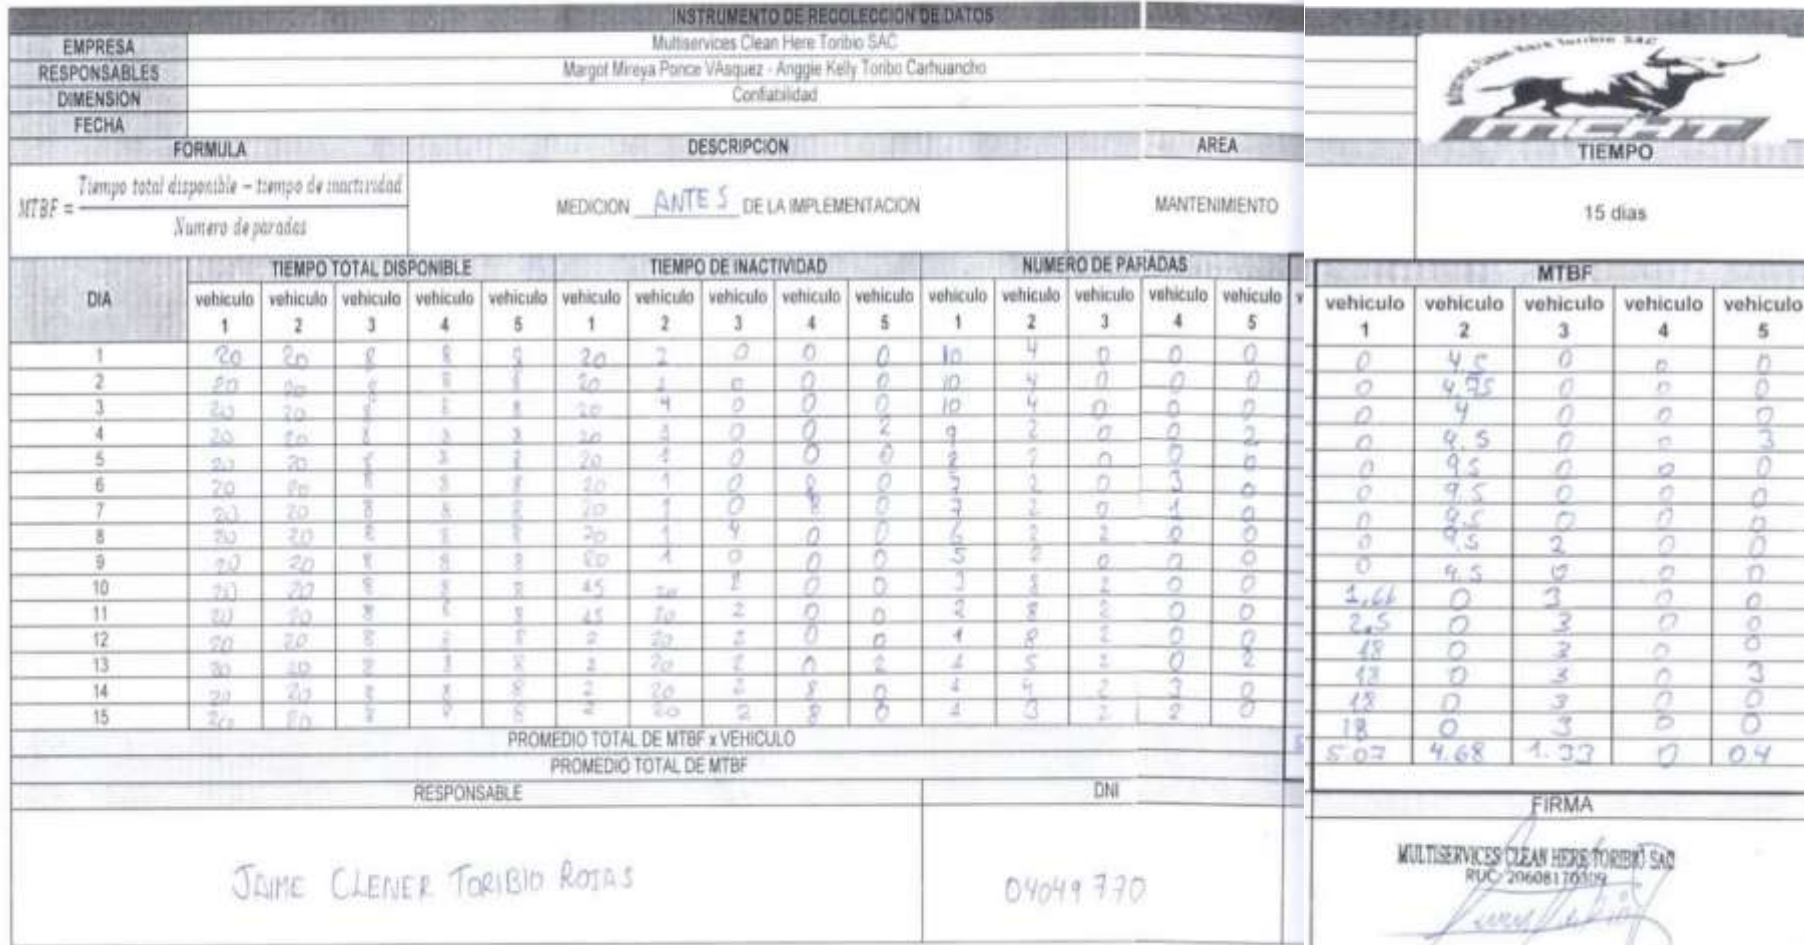 INSTRUMENTO DE RECOLECCION DE DATOS
EMPRESA Multiservices Clean Here Toribio SAC
RESPONSABLES Margot Mireya Ponce VAsquez - Anggie Kelly Toribo Carhuancho
DIMENSION Confiabilidad
FECHA
FORMULA DESCRIPCION AREA TIEMPO
MTBF = Tiempo total disponible - tiempo de inactividad
Numero de paradas
MEDICION ANTES DE LA IMPLEMENTACION MANTENIMIENTO 15 dias
DIA TIEMPO TOTAL DISPONIBLE TIEMPO DE INACTIVIDAD NUMERO DE PARADAS MTBF
vehiculo 1 vehiculo 2 vehiculo 3 vehiculo 4 vehiculo 5 vehiculo 1 vehiculo 2 vehiculo 3 vehiculo 4 vehiculo 5 vehiculo 1 vehiculo 2 vehiculo 3 vehiculo 4 vehiculo 5 vehiculo 1 vehiculo 2 vehiculo 3 vehiculo 4 vehiculo 5
1 20 20 8 8 8 20 2 0 0 0 10 4 0 0 0 0 4.5 0 0 0
2 20 20 8 8 8 20 1 0 0 0 10 4 0 0 0 0 4.75 0 0 0
3 20 20 8 8 8 20 4 0 0 0 10 4 0 0 0 0 4 0 0 0
4 20 20 8 8 8 20 0 0 2 9 2 0 0 2 0 0 0 3
5 20 20 8 8 8 20 1 0 0 0 2 0 0 0 0 9.5 0 0 0
6 20 20 8 8 8 20 1 0 8 0 2 0 3 0 0 9.5 0 0 0
7 20 20 8 8 8 20 1 0 8 0 7 2 0 1 0 0 9.5 0 0 0
8 20 20 8 8 8 20 1 4 0 0 6 2 2 0 0 0 9.5 2 0 0
9 20 20 8 8 8 20 1 0 0 0 5 2 0 0 0 0 9.5 0 0 0
10 20 20 8 8 8 15 20 2 0 0 3 8 2 0 0 1,66 0 3 0 0
11 20 20 8 8 8 15 20 2 0 0 2 8 2 0 0 2,5 0 3 0 0
12 20 20 8 8 8 2 20 2 0 0 1 8 2 0 0 18 0 3 0 0
13 20 20 8 8 8 2 20 2 0 2 1 5 2 0 2 18 0 3 0 3
14 20 20 8 8 8 2 20 2 8 0 1 4 2 3 0 18 0 3 0 0
15 20 20 8 8 8 2 20 2 8 0 1 3 2 2 0 18 0 3 0 0
PROMEDIO TOTAL DE MTBF x VEHICULO 5.07 4.68 1.33 0 0.4
PROMEDIO TOTAL DE MTBF
RESPONSABLE DNI FIRMA
JAIME CLENER TORIBIO ROJAS 04049770
MULTISERVICES CLEAN HERE TORIBIO SAC
RUC: 20608170309